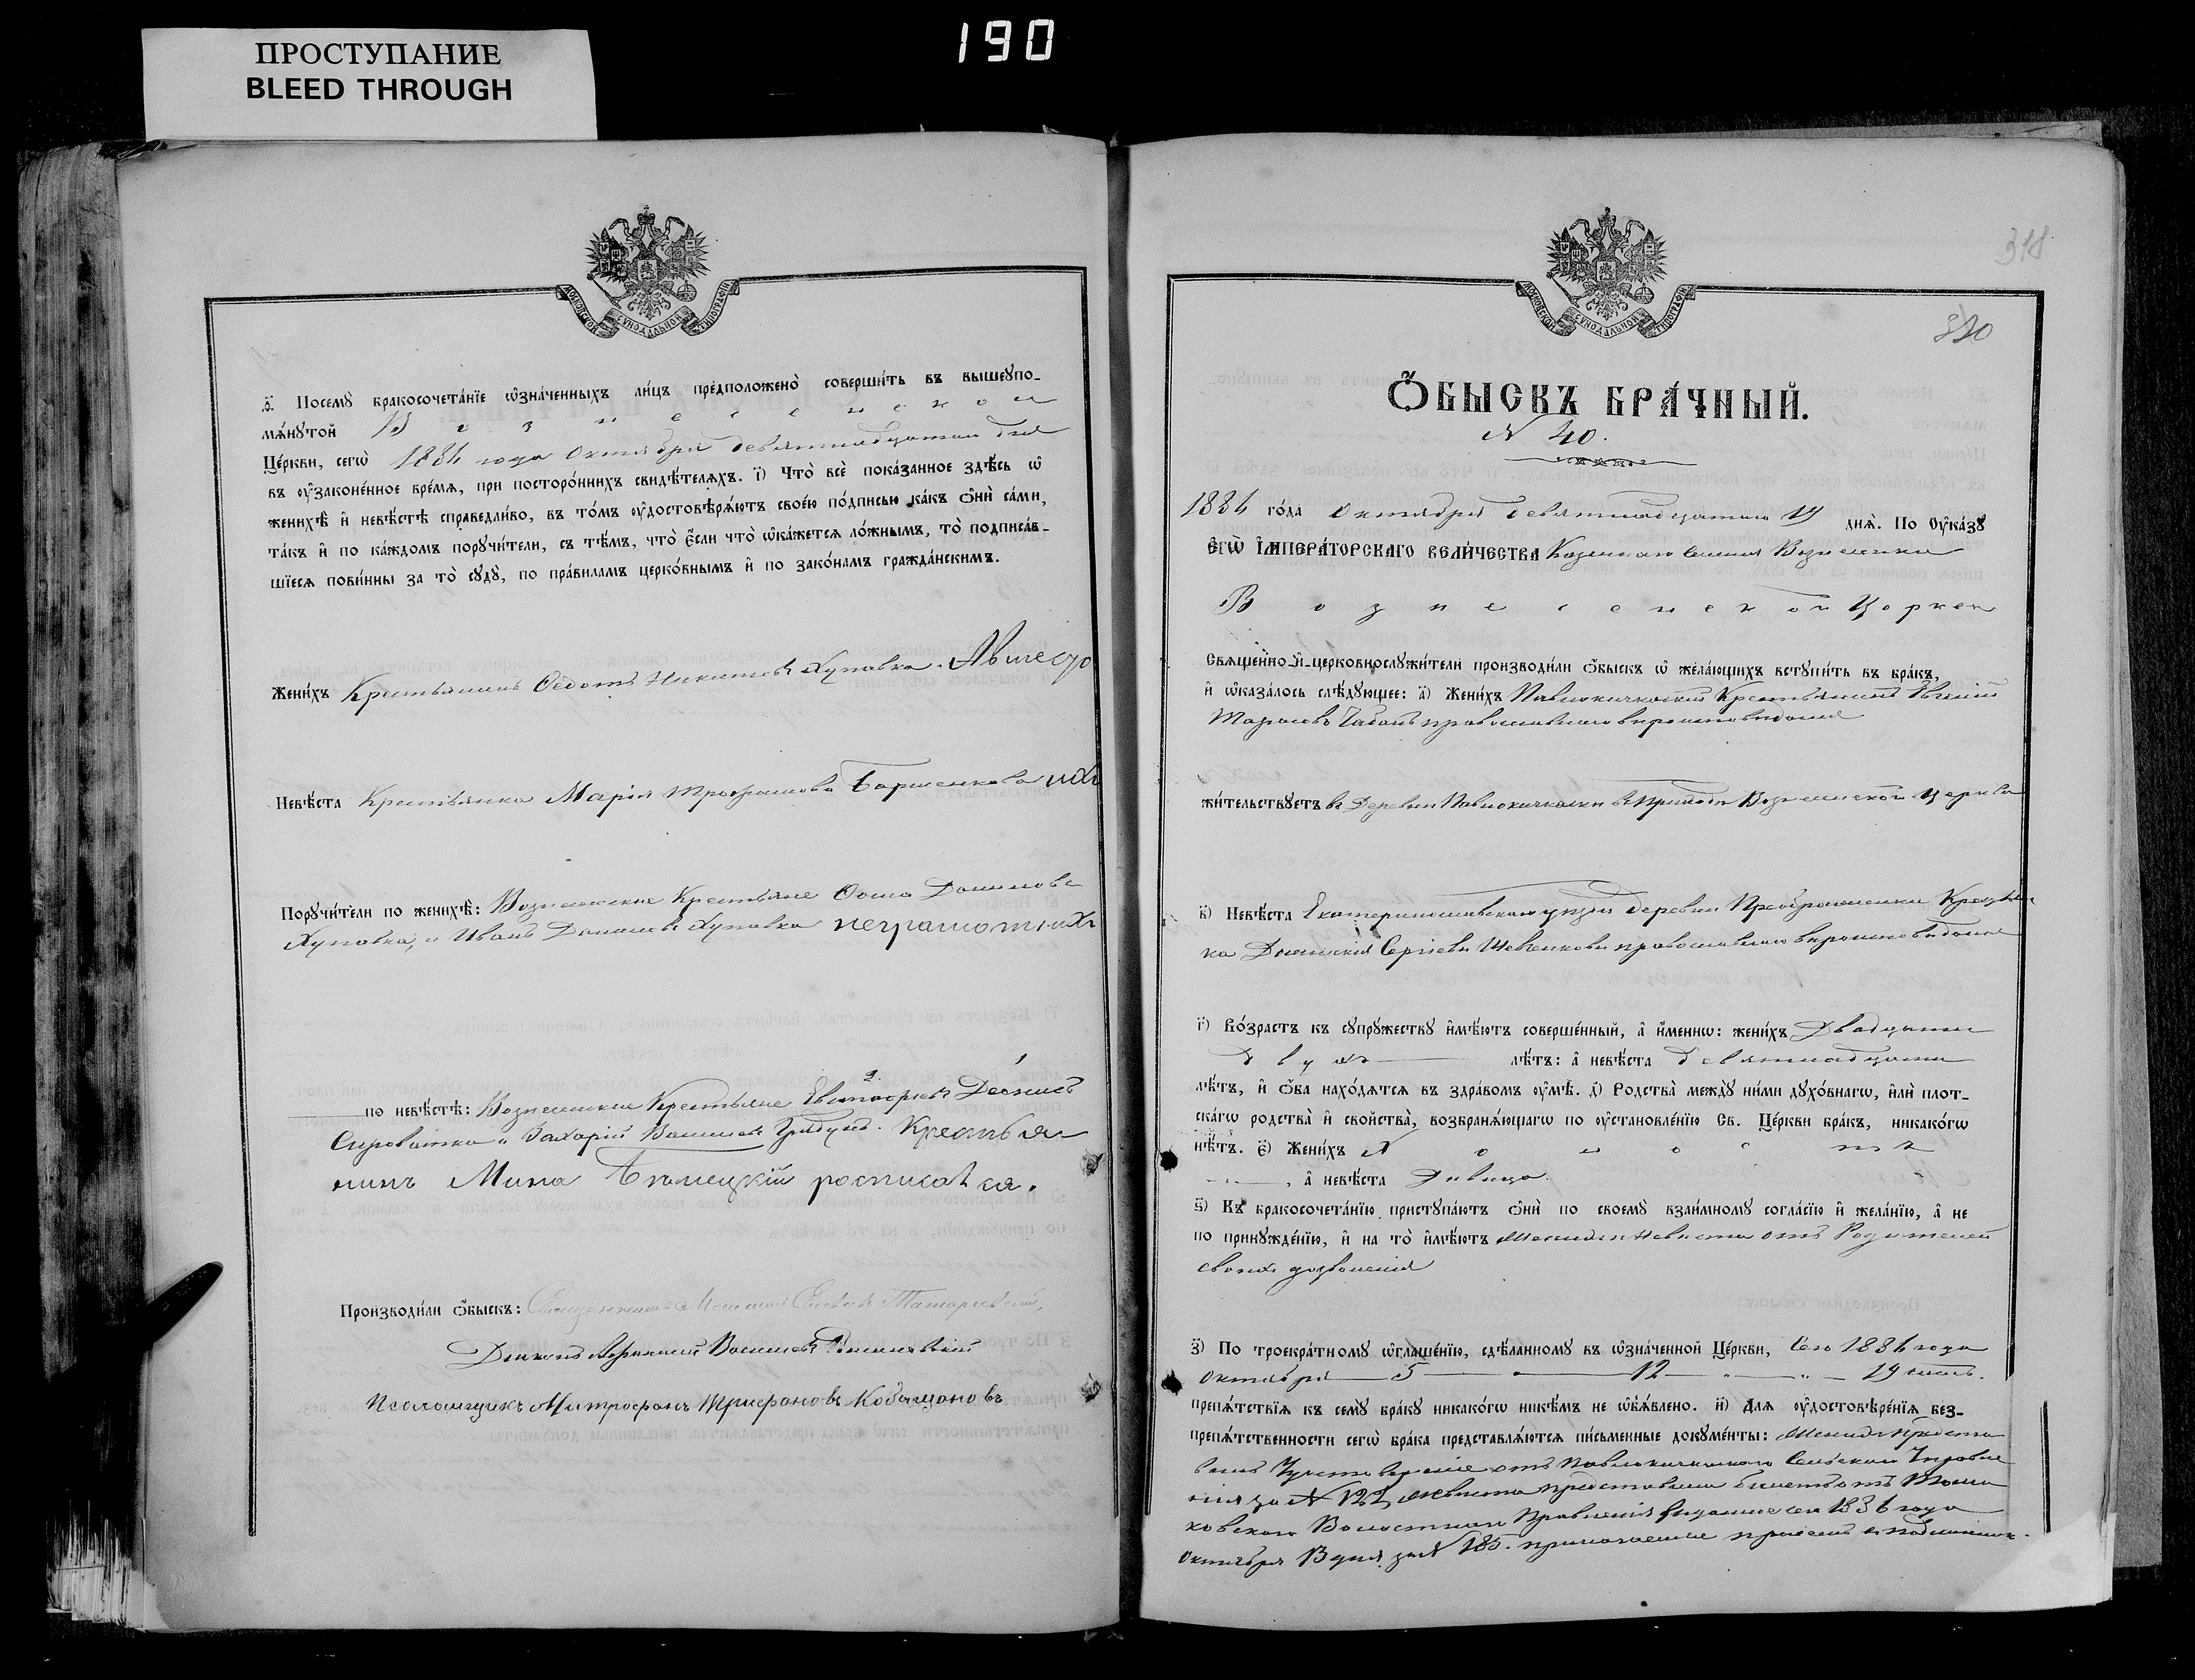 190
ПРОСТУПАНИЕ
BLEED THROUGH
МОСКОВСКОЙ СѴНОДАЛЬНОЙ ТИПОГРАФІИ
ѳ҃) Посемꙋ бракосочета́нїе ѡ҆зна́ченныхъ ли́цъ предположено̀ соверши́ть въ вышеꙋпо-
мѧ́нꙋтой Вознесенской
Це́ркви, сегѡ̀ 1884 года Октября девятнадцатаго дня
въ ᲂу҆законе́нное вре́мѧ, при посторо́ннихъ свидѣ́телѧхъ. і҃) Что̀ всѐ пока́занное здѣ́сь ѡ҆
женихѣ̀ и҆ невѣ́стѣ справедли́во, въ то́мъ ᲂу҆достовѣрѧ́ютъ свое́ю по́дписью ка́къ ѻ҆нѝ са́ми,
та́къ и҆ по ка́ждомъ порꙋчи́тели, съ тѣ́мъ, что̀ є҆́сли что̀ ѡ҆ка́жетсѧ ло́жнымъ, то̀ подписа́в-
шїесѧ пови́нны за то̀ сꙋдꙋ̀, по пра́виламъ церко́внымъ и҆ по зако́намъ гражда́нскимъ.
Жени́хъ Крестьянинъ Ѳедотъ Никитовъ Хупавка.
Невѣ́ста Крестьянка Марія Трофимова
Порꙋчи́тели по женихѣ̀: Вознесенские Крестьяне
Хупавка, и Иванъ Хупавка неграмотныхъ
по невѣ́стѣ: Вознесенские Крестьяне Евстафій Денисъ
Сыроватка и Захарій Васильевъ Крестья-
нинъ Мина росписался.
Производи́ли ѻ҆́быскъ: Священникъ
Діаконъ Василій
Псаломщикъ Митрофанъ Трифановъ Кобыщановъ
318
320
МОСКОВСКОЙ СѴНОДАЛЬНОЙ ТИПОГРАФІИ
Ѻ҆́БЫСКЪ БРА́ЧНЫЙ.
N 40.
1884 го́да Октября девятнадцатаго 19 днѧ̀. По Оу҆ка́зꙋ
Є҆гѡ̀ И҆мпера́торскагѡ вели́чества Казеннаго селенія Вознесенки
Вознесенской Церкви
Свѧще́нно-и҆-церковнослꙋжи́тели производи́ли ѻ҆́быскъ ѡ҆ жела́ющихъ встꙋпи́ть въ бра́къ,
и҆ ѡ҆каза́лось слѣ́дꙋющее: а҃) Жени́хъ Павлокичкаскій Крестьянинъ
Тарасовъ Чабанъ православнаго вѣроисповѣданія
жи́тельствꙋетъ въ Деревни Павлокичкаски въ Приходѣ Вознесенской Церкви
в҃) Невѣ́ста Екатеринославскаго уѣзда деревни Преображенки Крестьян-
ка Сергіева Шевченкова православнаго вѣроисповѣданія
г҃) Во́зрастъ къ сꙋпрꙋ́жествꙋ и҆мѣ́ютъ соверше́нный, а҆ и҆́меннѡ: жени́хъ Двадцати
двухъ лѣ́тъ: а҆ невѣ́ста девятнадцати
лѣ́тъ, и҆ ѻ҆́ба нахо́дѧтсѧ въ здра́вомъ ᲂу҆мѣ̀. д҃) Родства̀ междꙋ̀ ни́ми дꙋхо́внагѡ, и҆лѝ плот-
ска́гѡ родства̀ и҆ сво́йства̀, возбранѧ́ющагѡ по ᲂу҆становле́нїю Св. Це́ркви бра́къ, никако́гѡ
нѣ́тъ. є҃) Жени́хъ Холостъ
, а҆ невѣ́ста Дѣвица.
ѕ҃) Къ бракосочета́нїю пристꙋпа́ютъ ѻ҆нѝ по своемꙋ̀ взаи́мномꙋ согла́сїю и҆ жела́нїю, а҆ не
по принꙋжде́нїю, и҆ на то̀ и҆мѣ́ютъ Женихъ и Невѣста отъ Родителей
своихъ дозволенія
з҃) По троекра́тномꙋ ѡ҆глаше́нїю, сдѣ́ланномꙋ въ ѡ҆зна́ченной Це́ркви, Сего 1884 года
Октября — 5 — 12 — 19 чиселъ.
препѧ́тствїѧ къ семꙋ̀ бра́кꙋ никако́гѡ никѣ́мъ не ѡ҆б̾ѧ́влено. и҃) Длѧ ᲂу҆достовѣре́нїѧ без-
препѧ́тственности сегѡ̀ бра́ка представлѧ́ютсѧ пи́сьменные докꙋме́нты: Женихъ предста-
вилъ Удостовереніе отъ Павлокичкаскаго Сельского Управле-
нія за N 122, невѣста представила билетъ отъ Тома-
ковского Волостнаго Правленія выданное сего 1884 года
Октября дня за N 185.